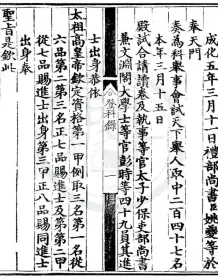 成化五年三月十一日禮部尚書臣姚夔等於
奉天門
奏為科舉事會試天下舉人取中二百四十七名
本年三月十五日
殿試合請讀卷及執事等官太子少保吏部尚書
兼文淵閣大學士等官彭時等四十九員其進
登科錄 一
士出身恭依
太祖高皇帝欽定資格第一甲例取三名第一名從
六品第二第三名正七品賜進士及第第二甲
從七品賜進士出身第三甲正八品賜同進士
出身奉
聖旨是欽此